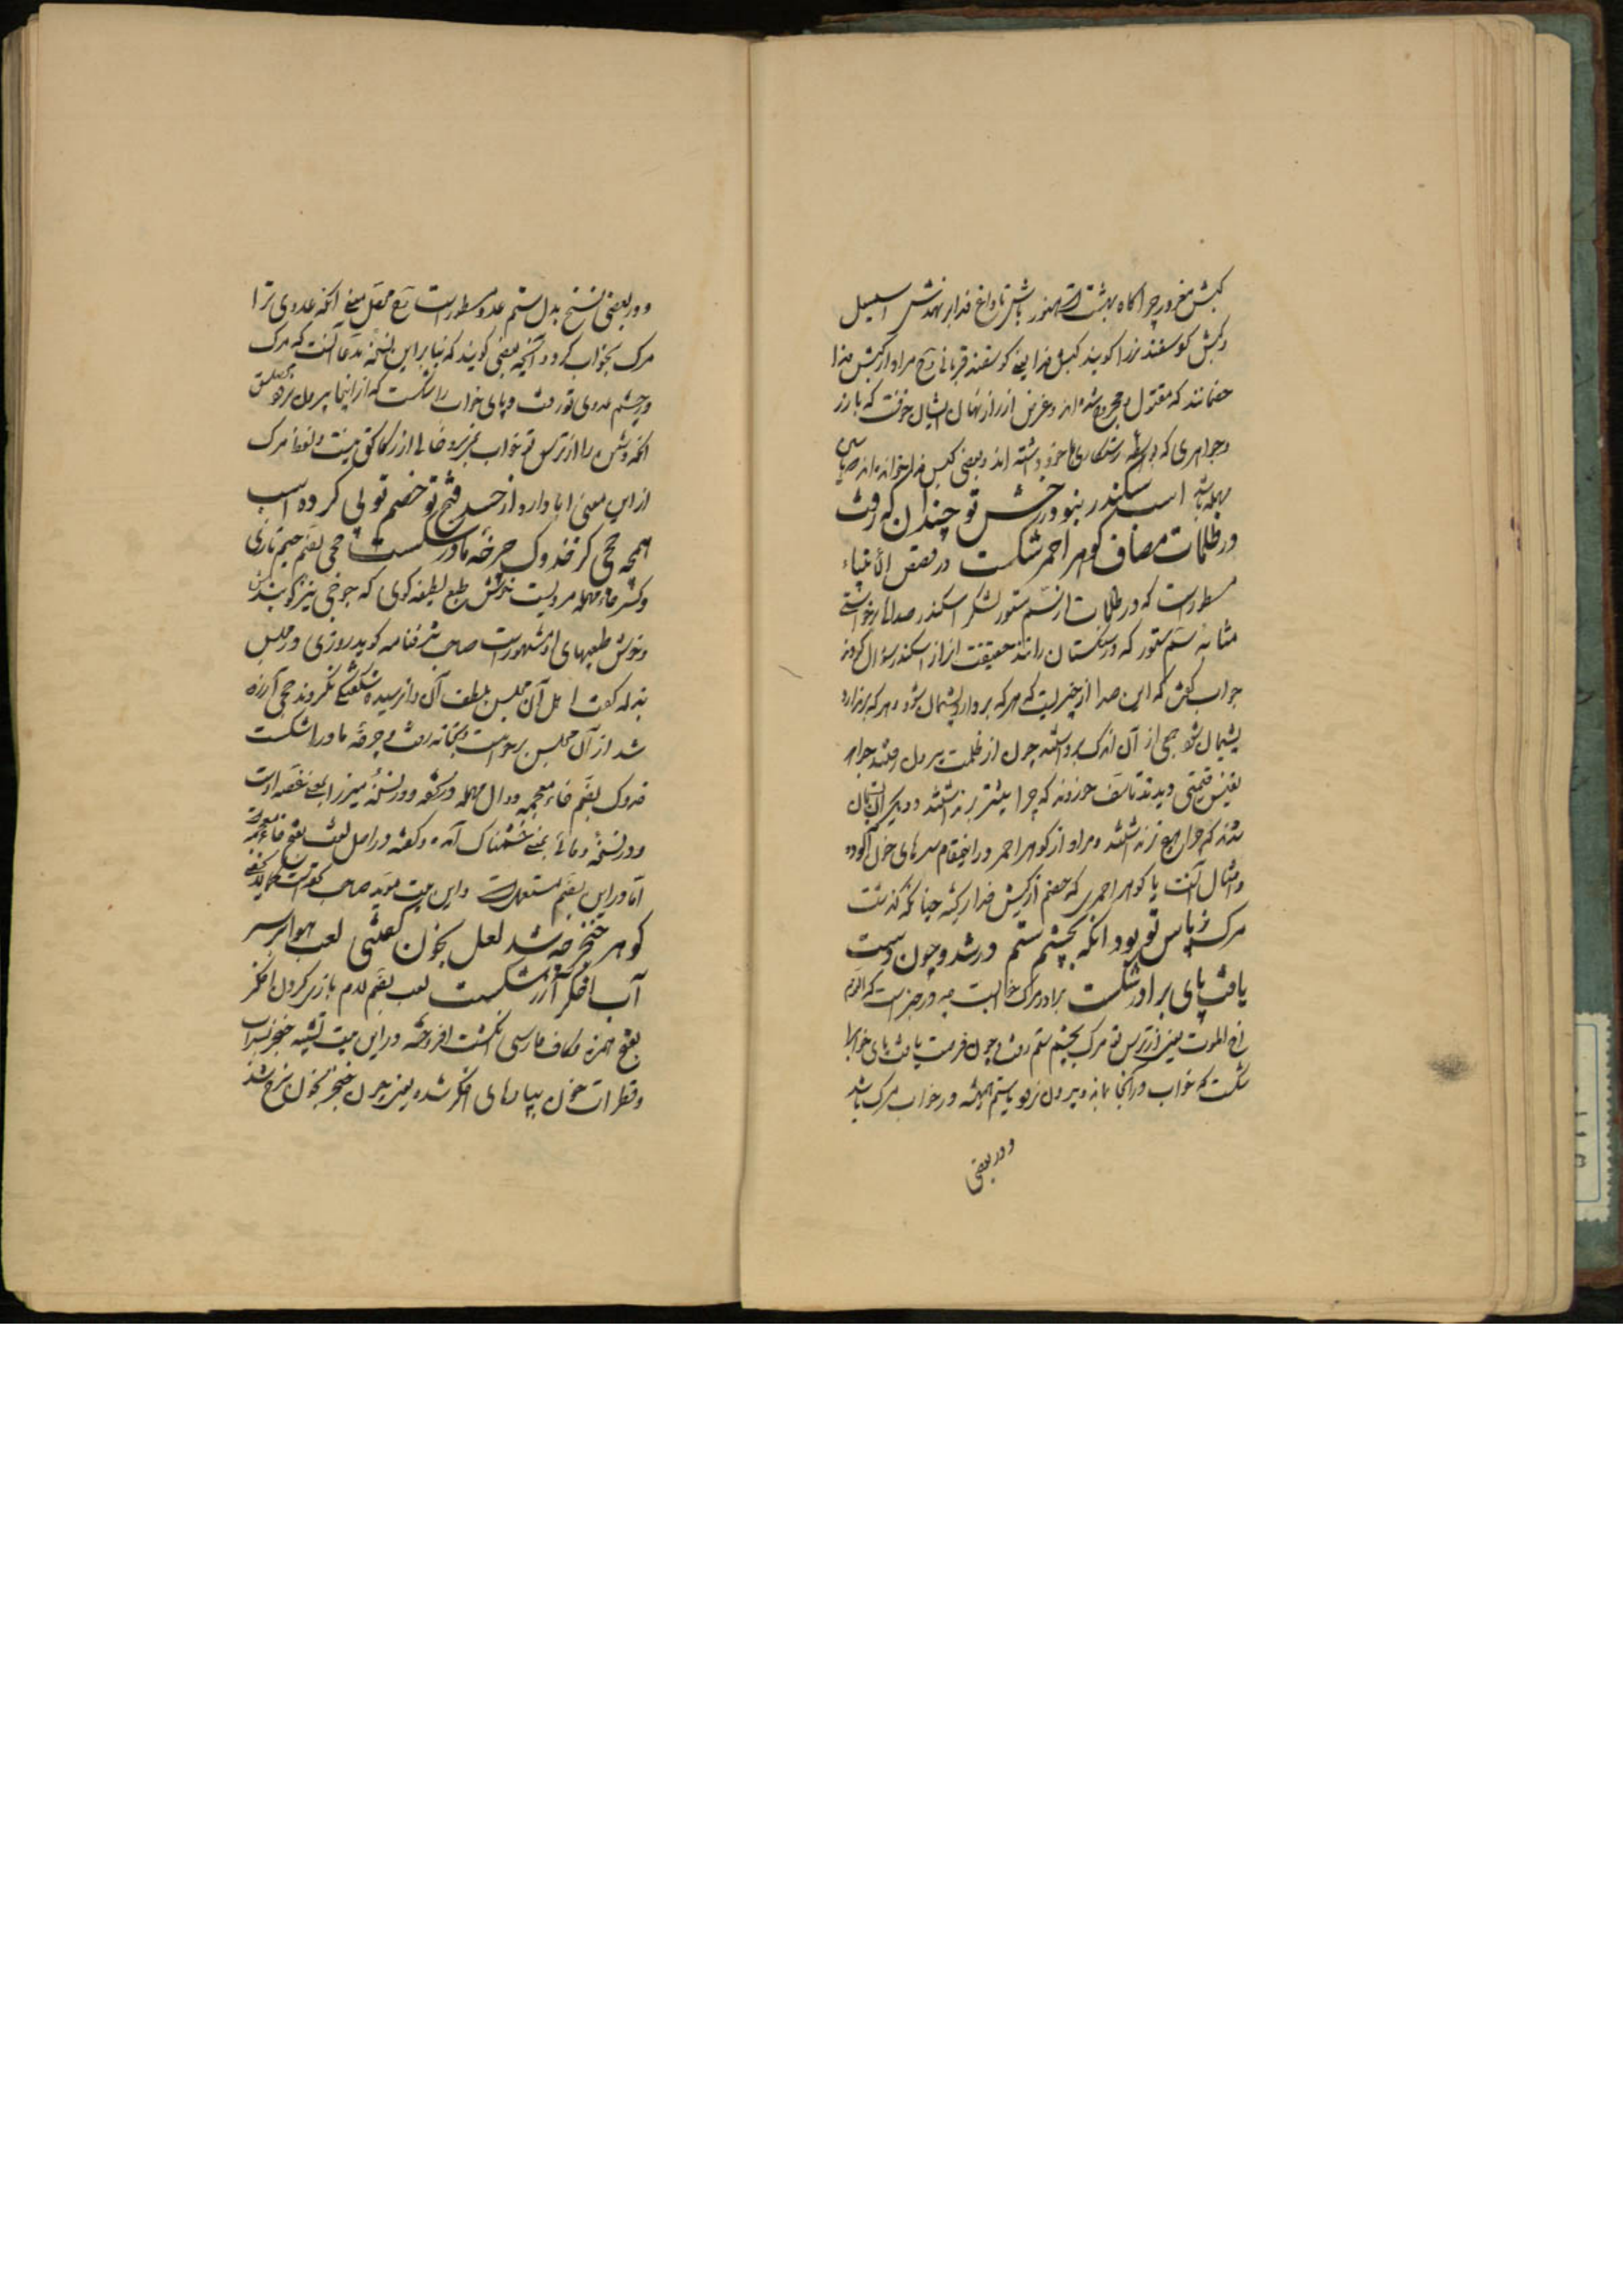 کبش مغرور چراکاه بهشتست هنوز باش تا داغ فدا برنهدش اسمعیل
و کبش کوسفند نر را کویند کبش فدا یعنی کوسفند قربانی و مراد از کبش فدا
خصمانند که مقتول و مجروح شده اند و غرض از راز نهان ایشان
و جواهری که بواسطه رستکاری با خود داشته اند و بعضی کیش فدا خوانده اند
مهمله باشد اسب سکندر نبود رخش تو چندان که رفت
در ظلمات مصاف کوهر احمر شکست در قصص الأنبیاء
مسطور است که در ظلمات از سم ستور لشکر اسکندر صدائی برخواستی
مثابه سم ستور که در سنکستان رانند حقیقت آنرا از اسکندر سؤال کردند
جواب کفت که این صدا از چیزیست که هر که بردارد پشیمان شود و هر که برندارد
پشیمان شود جمعی از آن اندک برداشتند چون از ظلمت بیرون رفتند جواهر
نفیس قیمتی دیدند تاسف خوردند که چرا بیشتر برنداشتند و دیکران پشیمان
شدند که چرا هیچ برنداشتند و مراد از کوهر احمر در این مقام سرهای خون آلوده
و امثال آنست یا کوهر احمری که خصم از کیش فدا ریخته چنانکه کذشت
مرک ز پاس تو بود انکه بچشم ستم در شد و چون دست
یافت پای برادر شکست برادر مرک خوابست چه در خبر است که النوم
اخ الموت یعنی از ترس تو مرک بچشم ستم رفت و چون فرصت یافت پای خواب را
شکست که خواب در آنجا بماند و بیرون نرود یا ستم همیشه در خواب مرک باشد
و در بعضی
و در بعضی نسخ بدل ستم عدو مسطور است یعنی انکه عدوی ترا
مرک بخواب کرد و آنچه بعضی کویند که بنا براین نسخه مدعا آنست که مرک
در چشم عدوی تو رفت و پای خواب را شکست که از اینجا بیرون نرود
انکه دشمن را از ترس تو خواب نمیبرد خالی از رکاکتی نیست و لفظ مرک
از این معنی ابا دارد از حسد فتح تو خصم تو پی کرد اسب
همچه جحی کز خدوک چرخه مادر شکست جحی بضم جیم تازی
و کسر حاء مهمله مردیست خوش طبع لطیفه کوی که جوحی نیز کویندش
و خوش طبعیهای او مشهور است صاحب شرفنامه کوید روزی در مجلس
بذله کفت اهل آن مجلس بلطف آن وا نرسیده شکفتکی نکردند جحی آزرده
شد از آن مجلس برخواست و بخانه رفت و چرخه مادر را شکست
خدوک بضم خاء معجمه و دال مهمله و در نسخه میرزا بمعنی غصه است
و در نسخه وفائی بمعنی خشمناک آمده و کفته در اصل لغت بفتح خاء معجمه
اما در این بضم مستعملست و این بیت مؤید صاحب
کوهر خنجر چه شد لعل بخون کفتئی لعب هوا بر سر
آب اخکر آزر شکست لعب بضم لام بازی کردن اخکر
بفتح همزه و کاف فارسی انکشت افروخته در این بیت تشبیه خنجر بآب
و قطرات خون بپارهای اخکر شده یعنی چون خنجر بخون سرخ شد